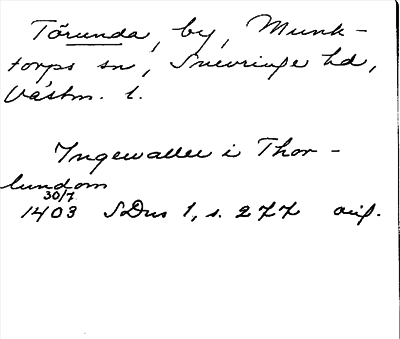 Tõrunda, by, Munk-
torps sn, Snevringe hd,
Västm. l.
Yngewallee i Thor-
lundom
30/7
1403 SDns 1, s. 277 avs.